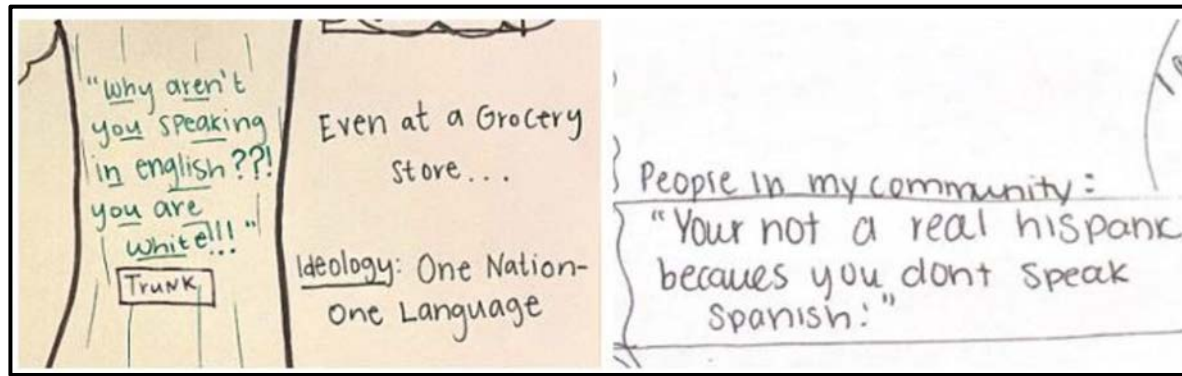 "Why aren't
you speaking
in english??!
you are
white!!!"
TRUNK
Even at a Grocery
store...
Ideology: One Nation-
One Language
People in my community:
"Your not a real hispanic
becaues you dont speak
Spanish:"